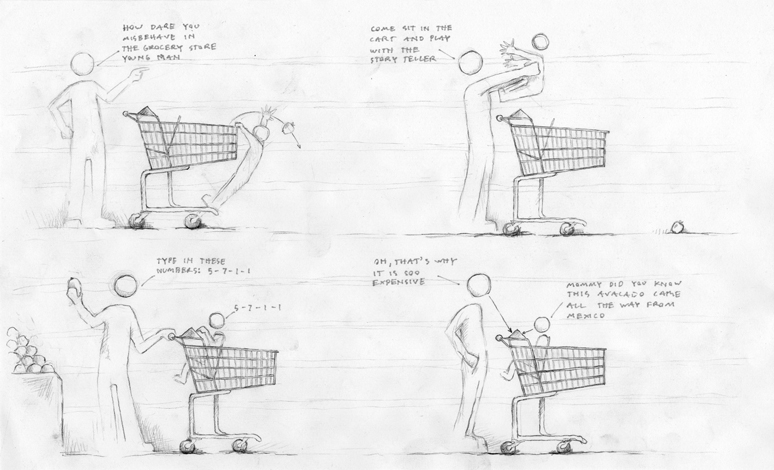 HOW DARE YOU
MISBEHAVE IN
THE GROCERY STORE
YOUNG MAN
COME SIT IN THE
CART AND PLAY
WITH THE
STORY TELLER
TYPE IN THESE
NUMBERS: 5-7-1-1
5-7-1-1
OH, THAT'S WHY
IT IS SOO
EXPENSIVE
MOMMY DID YOU KNOW
THIS AVALADO CAME
ALL THE WAY FROM
MEXICO